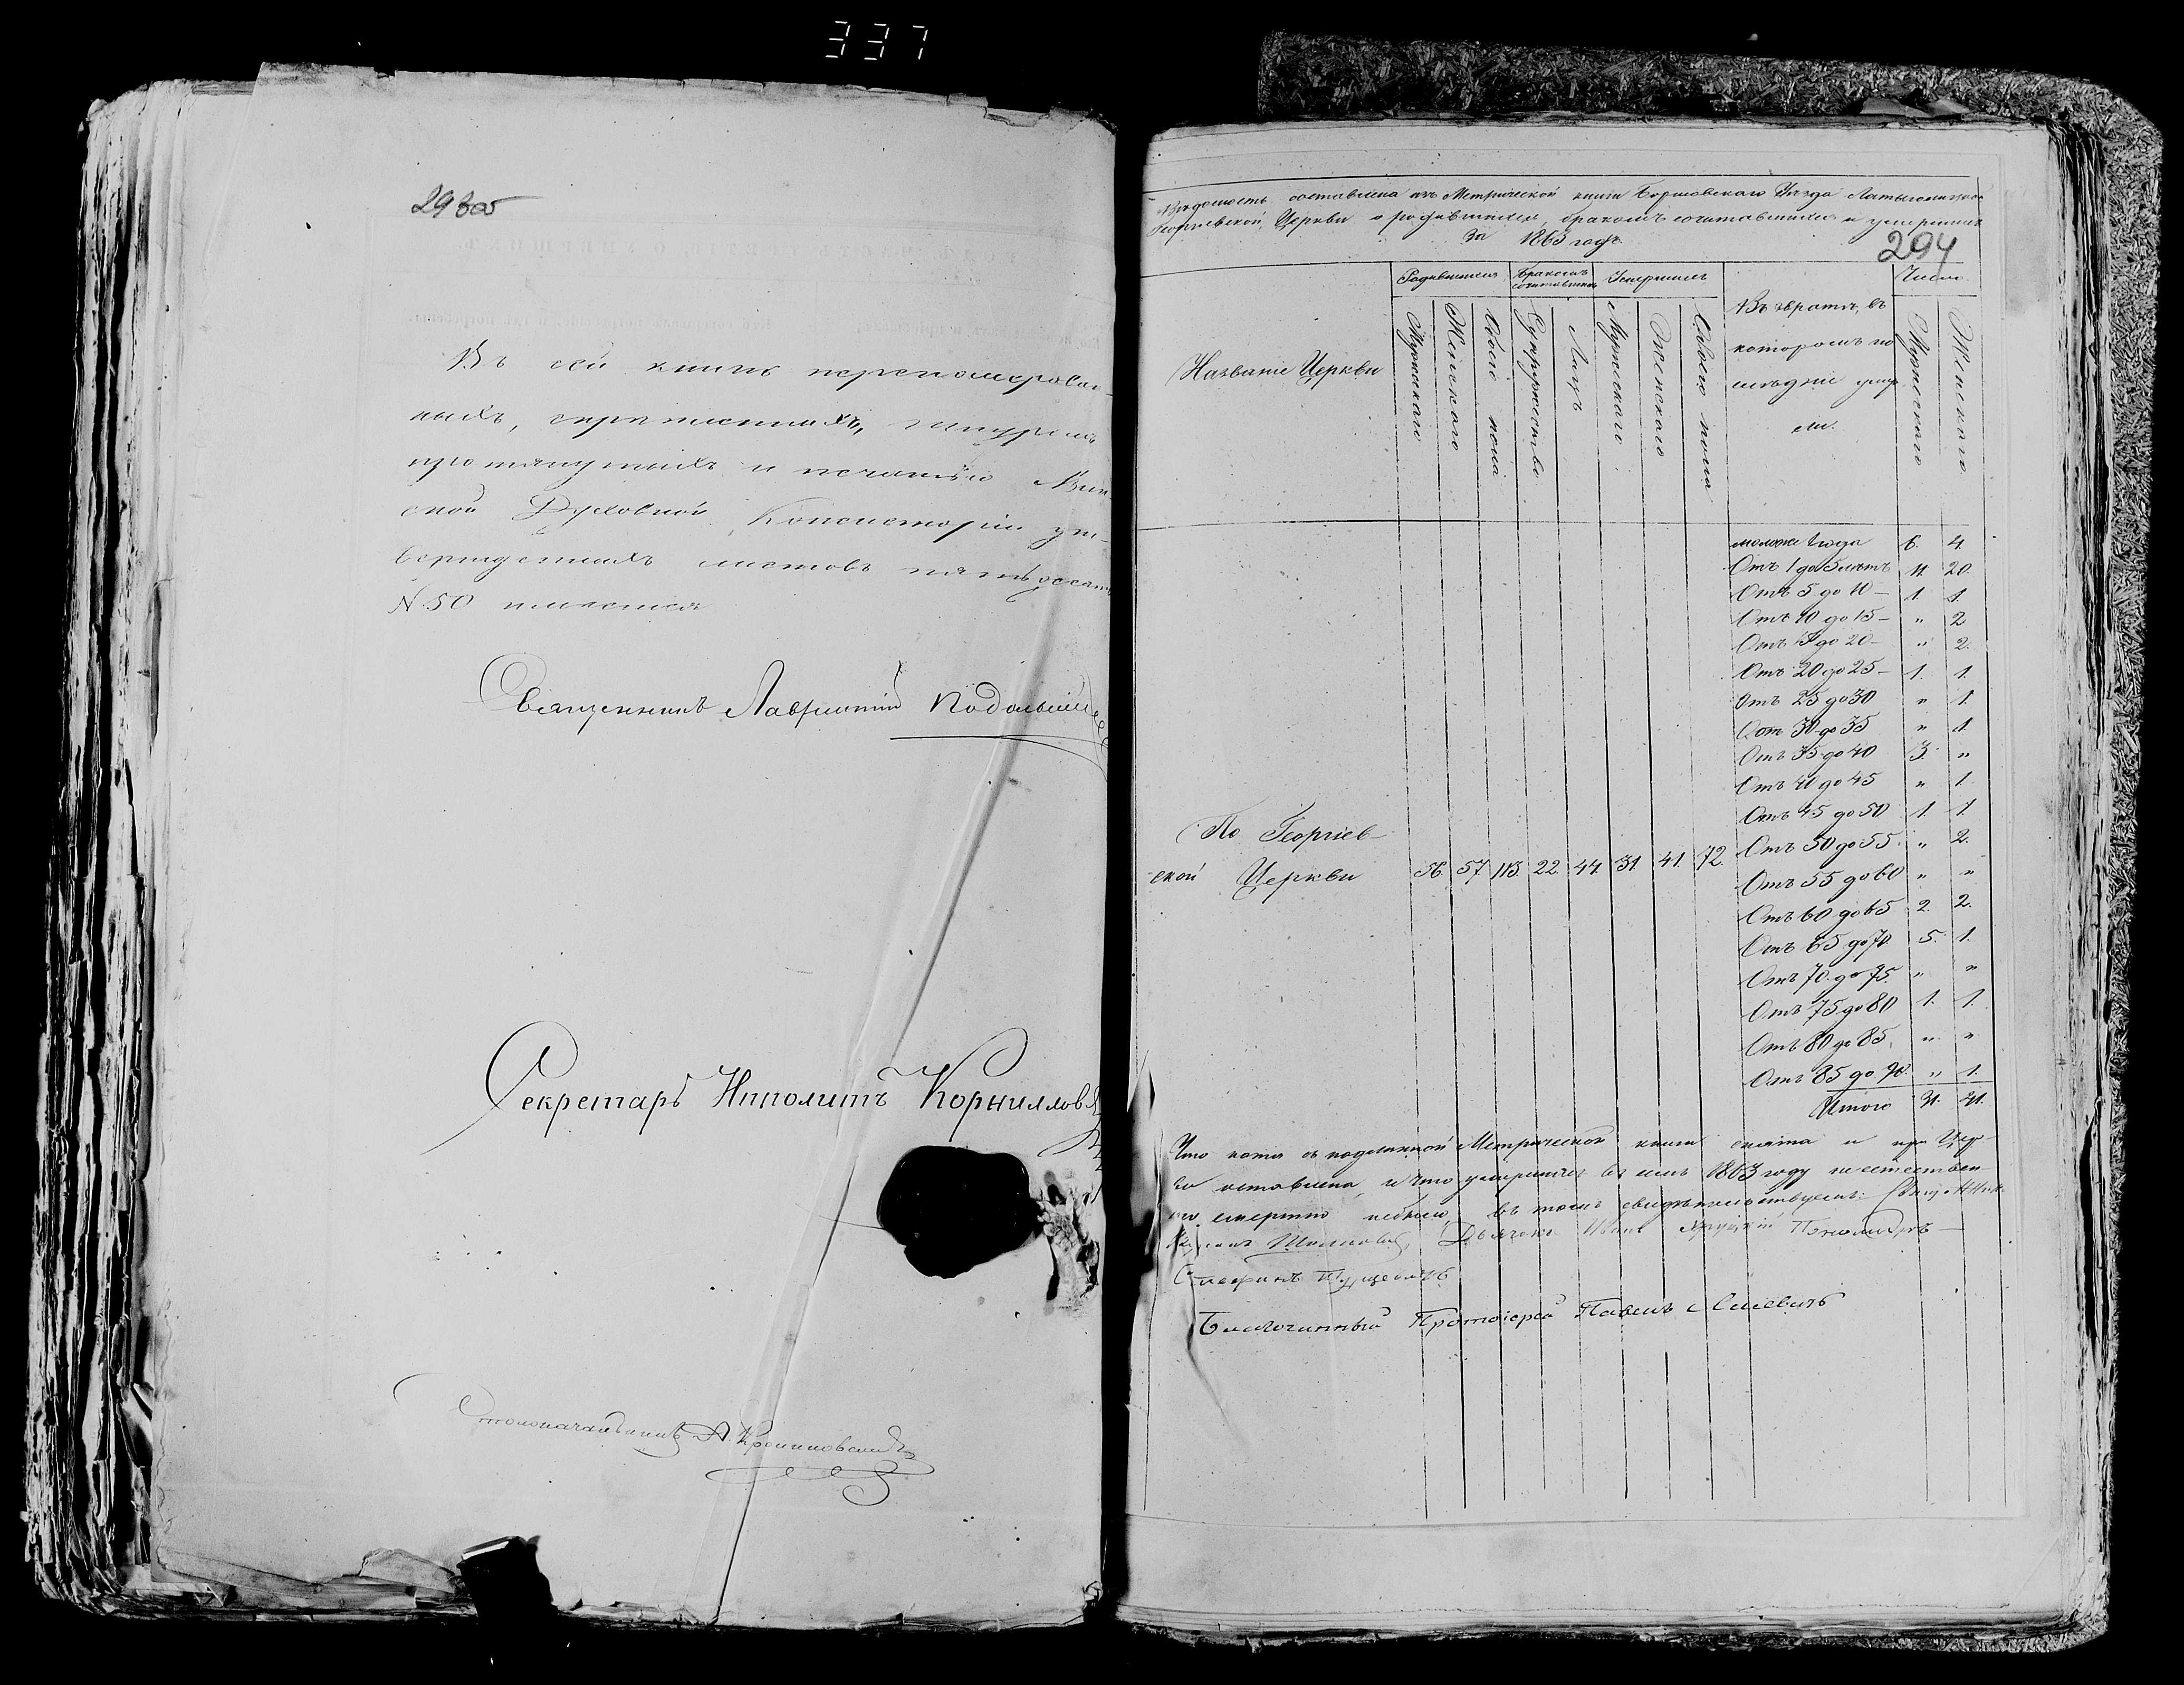 337
293об
Въ сей книгѣ перепомерован-
ныхъ, скрѣпленныхъ, шнуромъ
протянутыхъ и печатью Мин-
ской Духовной Консисторіи ут-
вержденныхъ листовъ пятьдесятъ
N. 50 имѣется
Священникъ Лаврентій
Секретарь Ипполитъ Корниллов
Столоначальникъ
294
Вѣдомость составлена изъ Метрической книги Борисовскаго Уѣзда
Георгіевской Церкви о родившихся, бракомъ сочитавшихся и умершихъ
За 1863 годъ.
Названіе Церкви
Родившихся
Бракомъ сочитавшихся
Умершихъ
Въ
которомъ по
слѣдніе умер
ли.
Число
Мужскаго
Женскаго
Обоего пола
Супружество
Лицъ
Мужскаго
Женскаго
Обоего пола
Мужскаго
Женскаго
моложе 1 года 6. 4.
Отъ 1 до 5 лѣтъ 11. 20.
Отъ 5 до 10 – 1 1.
Отъ 10 до 15 – " 2
Отъ 15 до 20 – " 2.
Отъ 20 до 25 – 1. 1.
Отъ 25 до 30 " 1.
Отъ 30 до 35 " 1.
Отъ 35 до 40 3. "
Отъ 40 до 45 " 1.
Отъ 45 до 50 1. 1.
Отъ 50 до 55 " 2.
По Георгіев-
ской Церкви 56. 57. 113. 22. 44. 31. 41. 72.
Отъ 55 до 60 " "
Отъ 60 до 65 2. 2.
Отъ 65 до 70 5. 1.
Отъ 70 до 75. " "
Отъ 75 до 80 1. 1.
Отъ 80 до 85. " "
Отъ 85 до 90. " 1.
Итого 31. 41.
Что копія съ подлинной Метрической книги снята и при Цер-
кви оставлена, и что умершихъ въ семъ 1863 году неестествен-
но смертію небыло, въ томъ свидѣтельствуемъ: Священникъ
Дьячокъ Иванъ Пономарь
Благочинный Протоіерей Павелъ